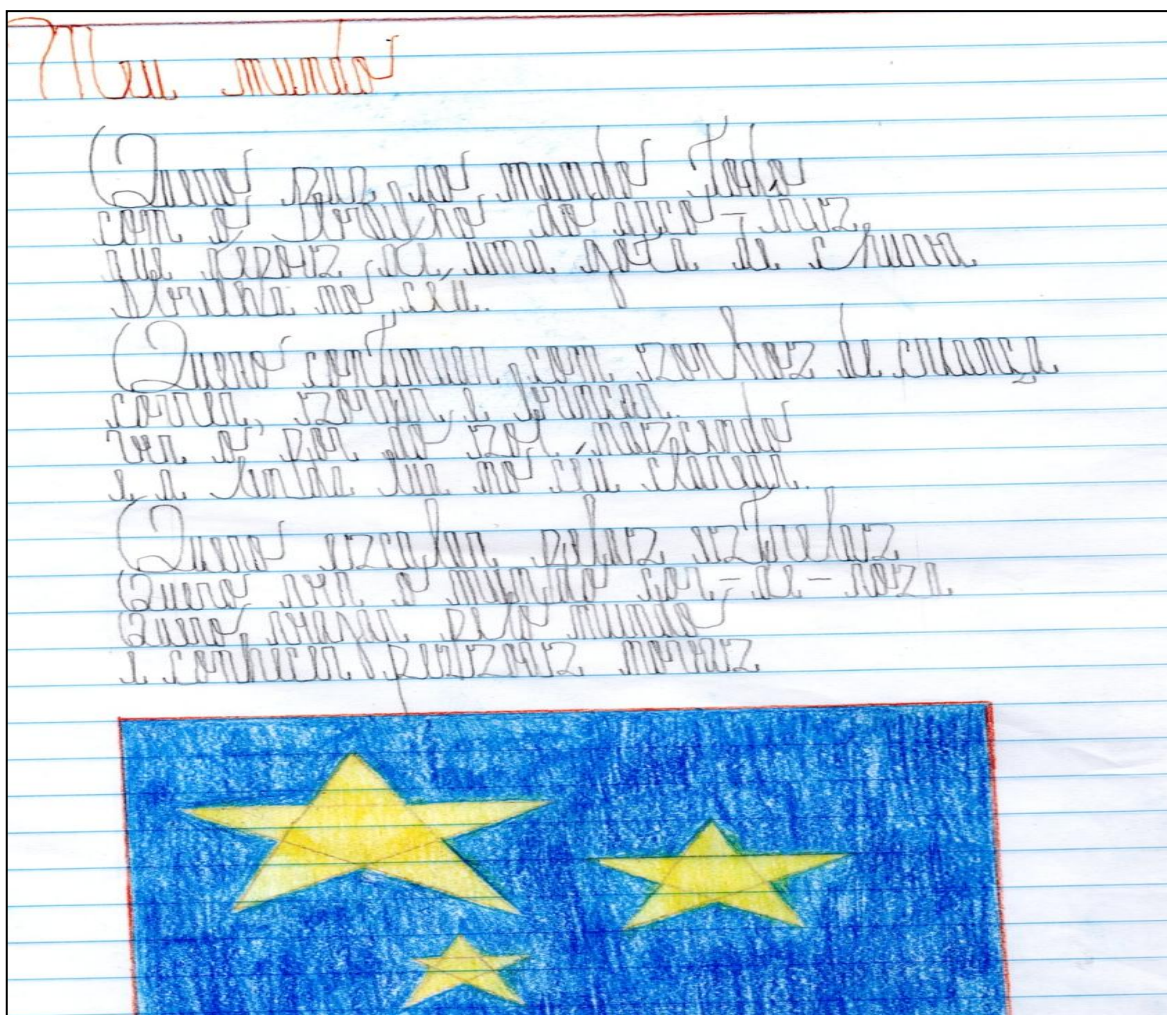 Meu mundo
Quero paz no mundo todo
com o brilho do arco-iris
que depois de uma gota de chuva
brilha no céu.
Quero continuar com sonhos de criança
correr, sorrir e brincar.
ver o por do sol nascendo
e a linda lua no céu clarear.
Quero escalar pelas estrelas
Quero ver o mundo cor-de-rosa
Quero viajar pelo mundo
e conhecer pessoas novas